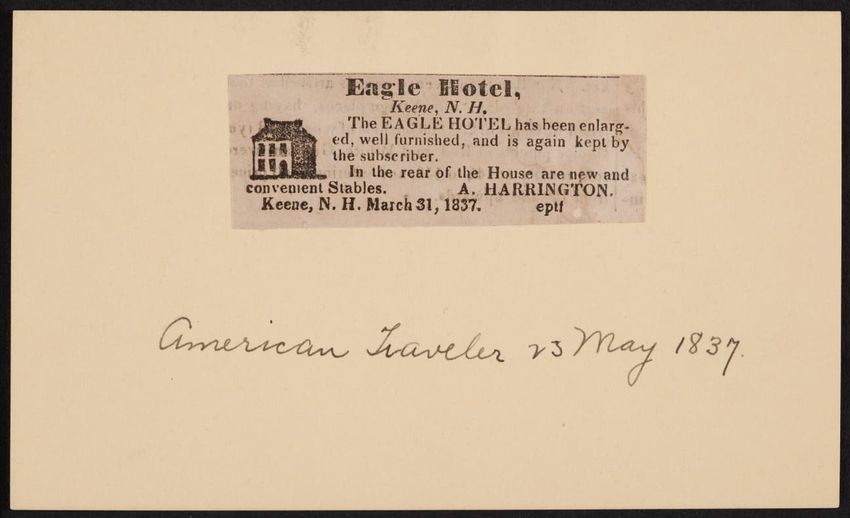 Eagle Hotel,
Keene, N. H.
The EAGLE HOTEL has been enlarg-
ed, well furnished, and is again kept by
the subscriber.
In the rear of the House are new and
convenient Stables. A. HARRINGTON.
Keene, N. H. March 31, 1837. eptf
American Traveler 23 May 1837.